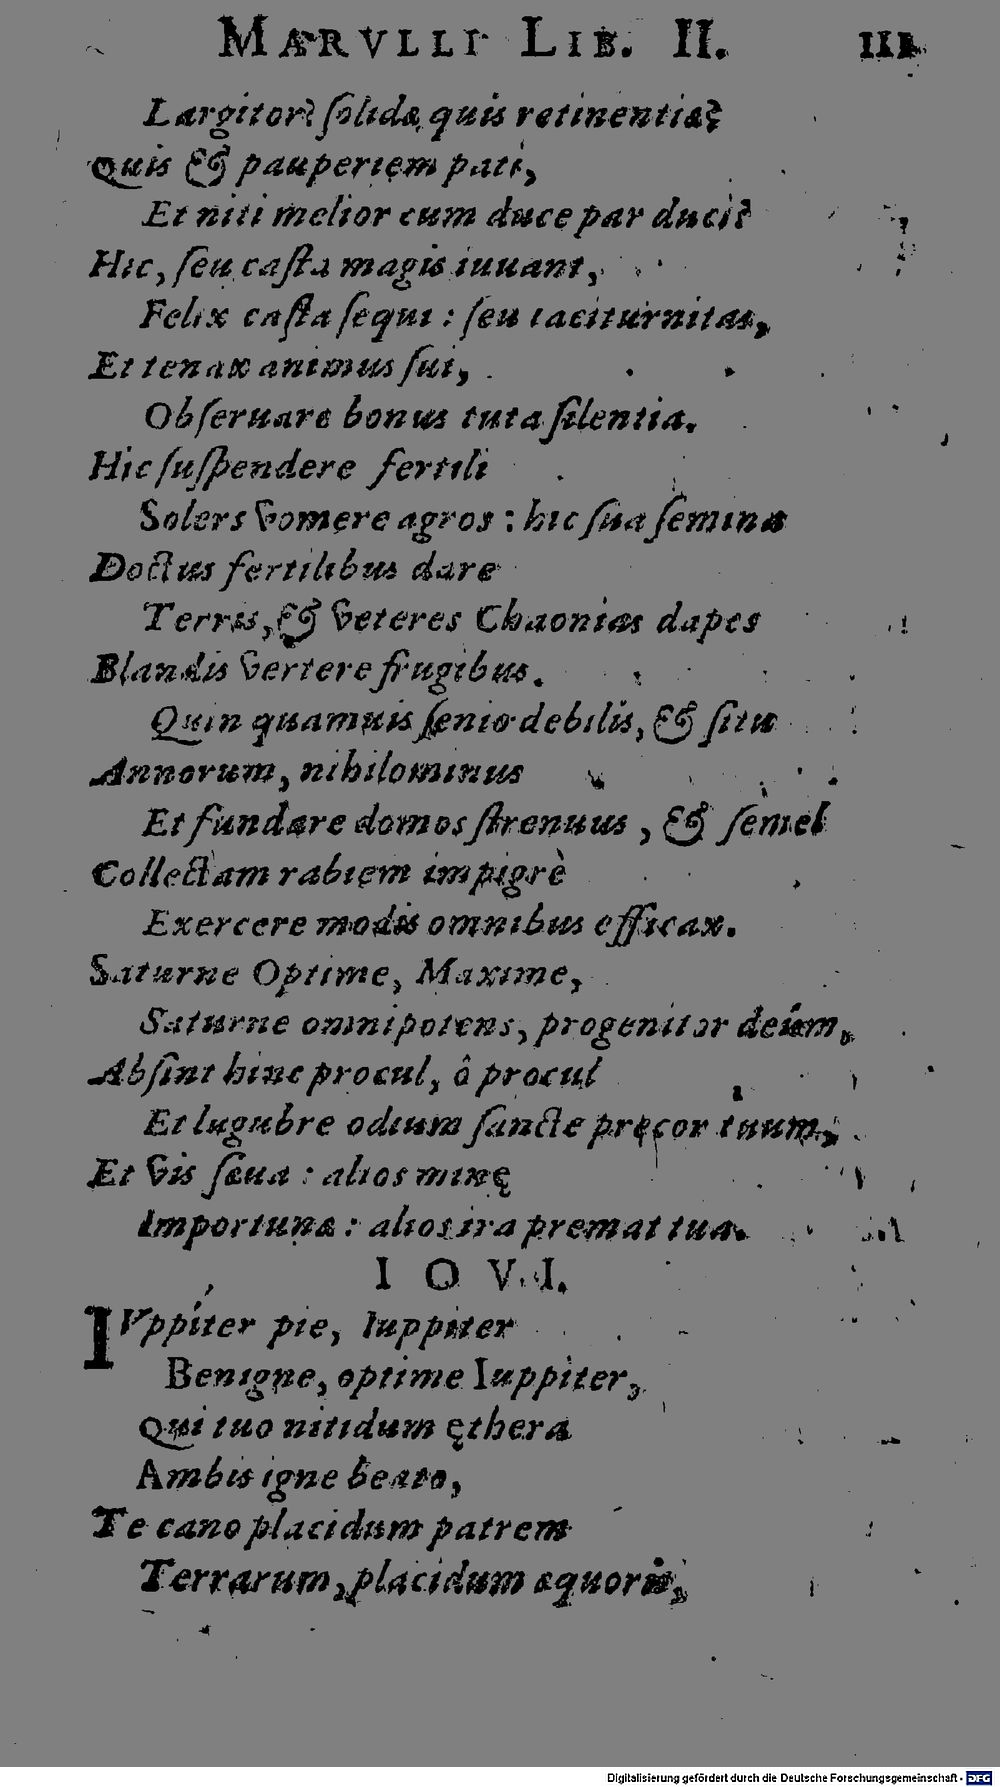 MARVLLI LIB. II. 111
Largitor? ſolidæ quis retinentiæ?
Quis & pauperiem pati,
Et niti melior cum duce par duci?
Hic, ſeu caſta magis iuuant,
Felix caſta ſequi: ſeu taciturnitas,
Et tenax animus ſui,
Obſeruare bonus tuta ſilentia.
Hic ſuſpendere fertili
Solers vomere agros: hic ſua ſemina
Doctus fertilibus dare
Terris, & veteres Chaonias dapes
Blandis vertere frugibus.
Quin quamuis ſenio debilis, & ſitu
Annorum, nihilominus
Et fundare domos ſtrenuus, & ſemel
Collectam rabiem impigrè
Exercere modis omnibus efficax.
Saturne Optime, Maxime,
Saturne omnipotens, progenitor deûm,
Abſint hinc procul, ô procul
Et lugubre odium ſancte pręcor tuum,
Et vis ſæua: alios minę
Importunæ: alios ira premat tua.
IOVI.
IVppiter pie, Iuppiter
Benigne, optime Iuppiter,
Qui tuo nitidum ęthera
Ambis igne beato,
Te cano placidum patrem
Terrarum, placidum æquoris,
Digitalisierung gefördert durch die Deutsche Forschungsgemeinschaft - DFG